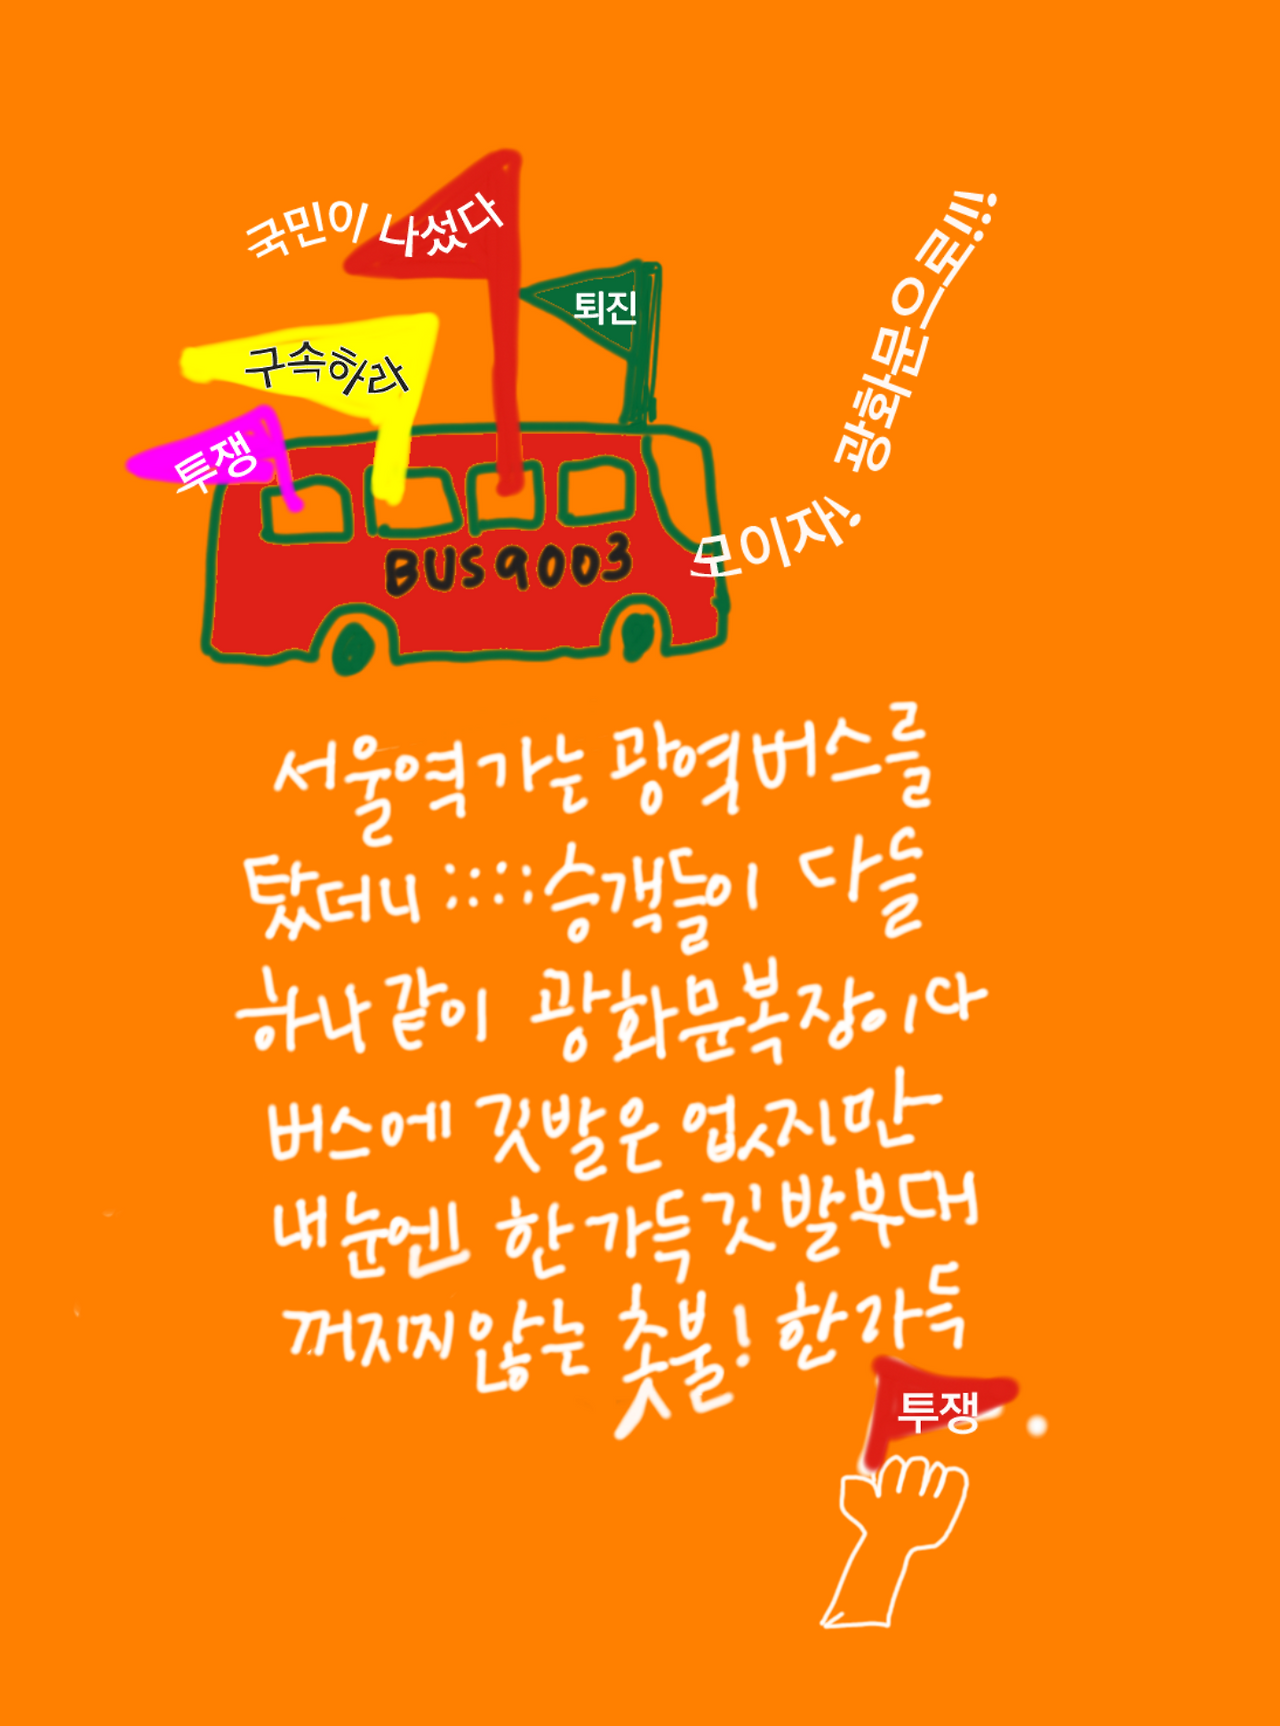 국민이 나섰다
퇴진
구속하라
투쟁
BUS 9003
모이자! 광화문으로!!!
서울역 가는 광역버스를
탔더니 :::: 승객들이 다들
하나같이 광화문복장이다
버스에 깃발은 없지만
내눈엔 한가득 깃발부대
꺼지지않는 촛불! 한가득
투쟁